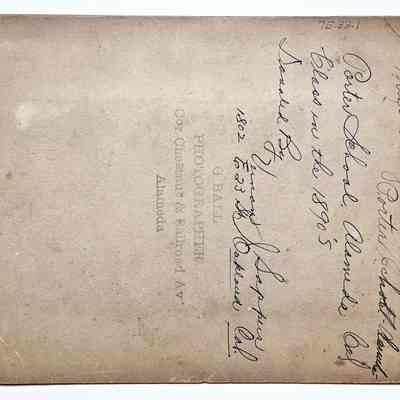 75-33-1
Porter School
Porter School, Alameda Cal
Class in the 1890's
Donated By
Vernon J Sappers
1802 E 23 St Oakland Cal.
G BALL
PHOTOGRAPHER
Cor Chestnut & Railroad Av
Alameda